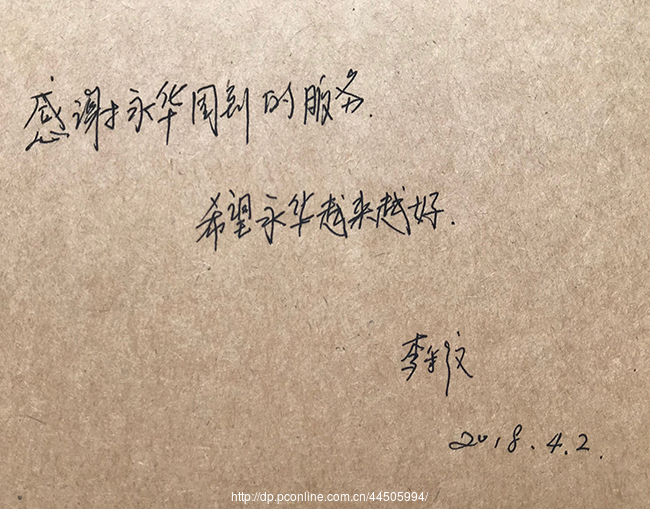 感谢永华周到的服务.
希望永华越来越好.
李
2018.4.2.
http://dp.pconline.com.cn/44505994/